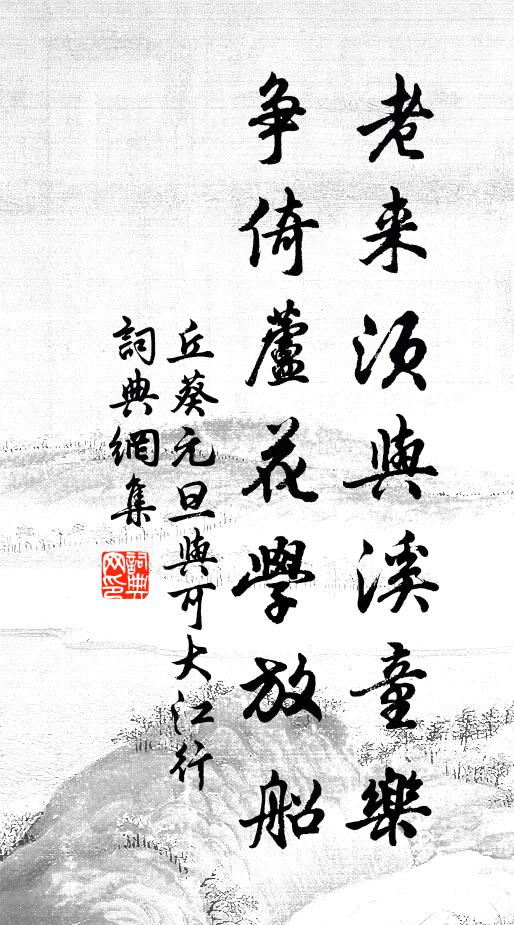 老来須與溪童樂
争倚蘆花學放船
丘葵元旦與可大江行
詞典網集
詞典网印